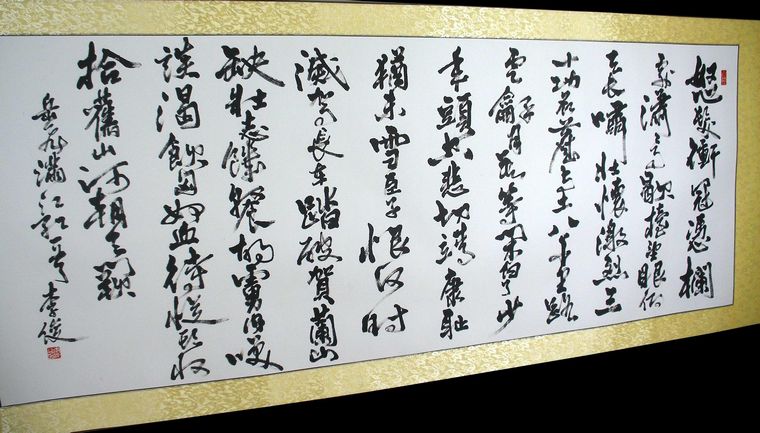 怒髮衝冠憑欄
處瀟瀟雨歇擡望眼仰
天長嘯壯懷激烈三
十功名塵与土八千里路
雲龢月莫等閑白了少
年頭空悲切靖康恥
猶未雪臣子恨何時
滅駕長車踏破賀蘭山
缺壯志飢餐胡虜肉笑
談渴飲匈奴血待從頭收
拾舊山河朝天闕
岳飛滿江紅 李俊